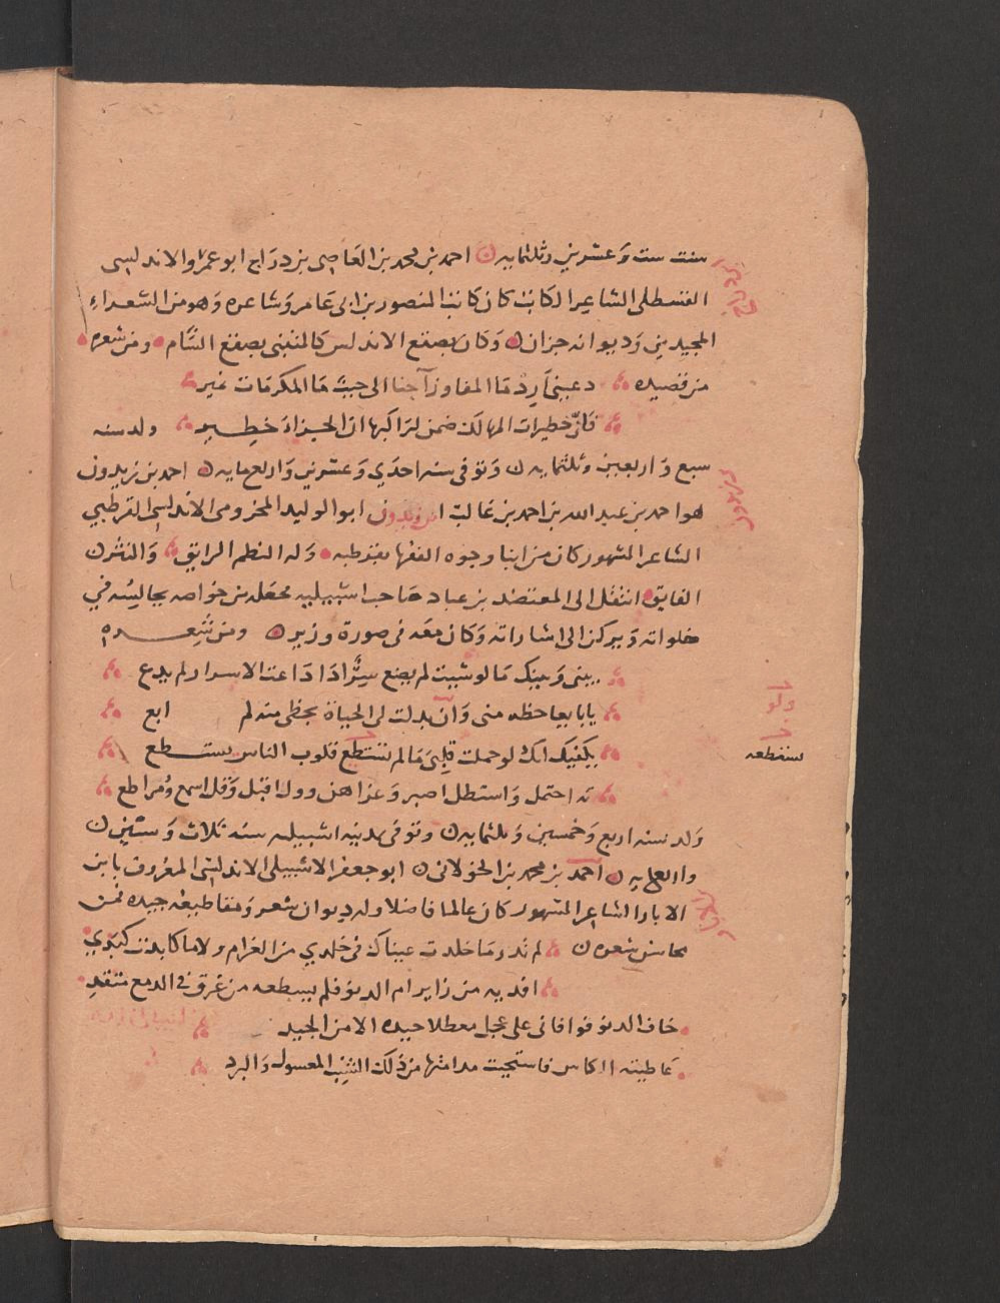 سنت ست وعشرين وثلثمايه احمد بن محمد بن العاصي بن دراج ابو عمر والاندلسى
القسطلى الشاعر الكاتب كان كاتب المنصور بن ابى عامر وشاعره وهو من الشعراء
المجيدين وديوانه جزان وكان بصقع الاندلس كالمتنبى بصقع الشام ومن شعره
من قصيده دعينى ارد ما المفاوز آجنا الى حيث ما المكرمات نمير
فان خطيرات المهالك ضمن لراكبها ان الجزاء خطير ولد سنه
سبع واربعين وثلثمايه وتوفى سنه احدي وعشرين واربعمايه احمد بن زيدون
هو احمد بن عبد الله بن احمد بن غالب ابن زيدون ابو الوليد المخزومى الاندلسى القرطبي
الشاعر المشهور كان من ابنا وجوه الفقها بقرطبه وله النظم الرايق والنثر
الفايق انتقل الى المعتضد بن عباد صاحب اشبيليه فجعله من خواصه يجالسه في
خلواته ويركن الى اشاراته وكان معه فى صورة وزير ومن شعره
بينى وبينك ما لو شيت لم يضع سرٌّ اذا ذاعت الاسرار لم يذع
يا بايعا حظه منى وان بدلت لى الحياة بحظى منه لم ابع
يكفيك انك لو حملت قلبى ما لم تستطع قلوب الناس يستطع
ته احتمل واستطل اصبر وعز اهن وول اقبل وقل اسمع ومر اطع
ولد سنه اربع وخمسين وثلثمايه وتوفى بمدينه اشبيليه سنه ثلاث وستين
واربعمايه احمد بن محمد بن الخولانى ابو جعفر الاشبيلى الاندلسى المعروف بابن
الابار الشاعر المشهور كان عالما فاضلا وله ديوان شعر ومقاطيعه جيده فمن
محاسن شعره لم تدر ما خلدت عيناك فى خلدي من الغرام ولا ما كابدت كبدي
افديه من زاير رام الدنو فلم يسطعه من غرق في الدمع متقد
خاف الدنو فوافانى على عجل معطلا جيده الا من الجيد
عاطيته الكاس فاستحيت مدامتها من ذلك الشنب المعسول والبرد
ابن دراج
ابن زيدون
ولو
تستطعه